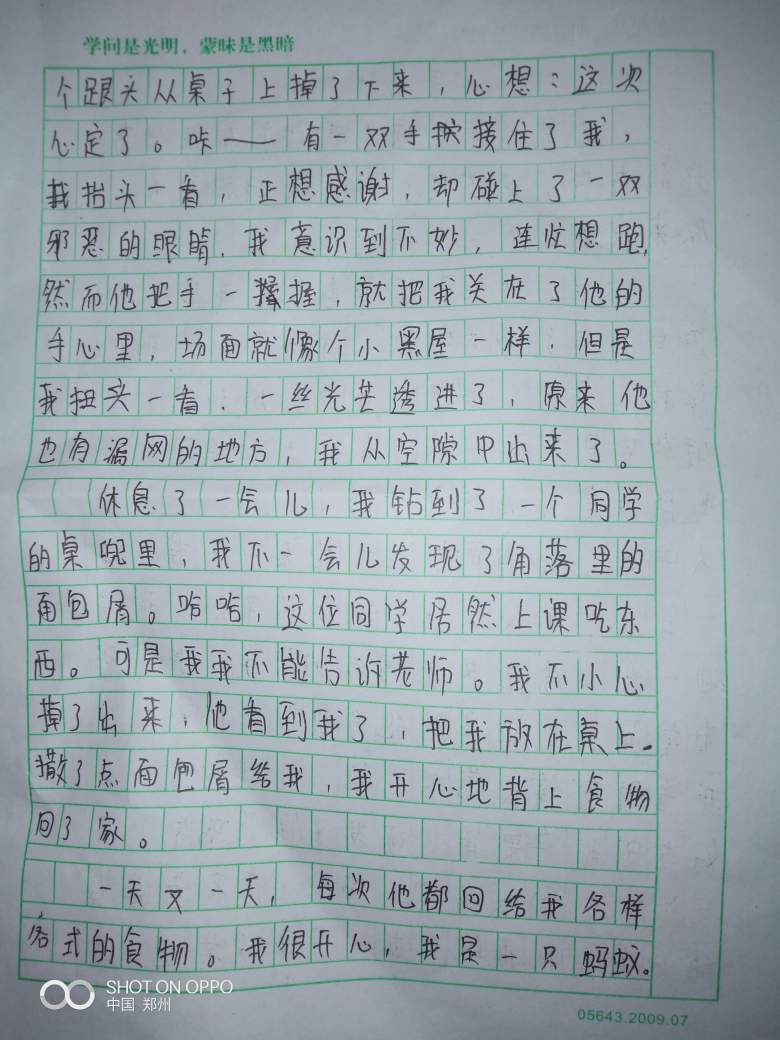 学问是光明，蒙昧是黑暗
个跟头从桌子上掉了下来，心想：这次
心定了。咔——有一双手接住了我，
我抬头一看，正想感谢，却碰上了一双
邪恶的眼睛，我意识到不妙，连忙想跑，
然而他把手一握，就把我关在了他的
手心里，场面就像个小黑屋一样，但是
我扭头一看，一丝光芒透进了，原来他
也有漏网的地方，我从空隙中出来了。
休息了一会儿，我钻到了一个同学
的桌兜里，我不一会儿发现了角落里的
面包屑。哈哈，这位同学居然上课吃东
西。可是我我不能告诉老师。我不小心
摸了出来，他看到我了，把我放在桌上。
撒了点面包屑给我，我开心地背上食物
回了家。
一天又一天，每次他都回给我各样
各式的食物。我很开心，我是一只蚂蚁。
SHOT ON OPPO
中国 郑州
05643.2009.07